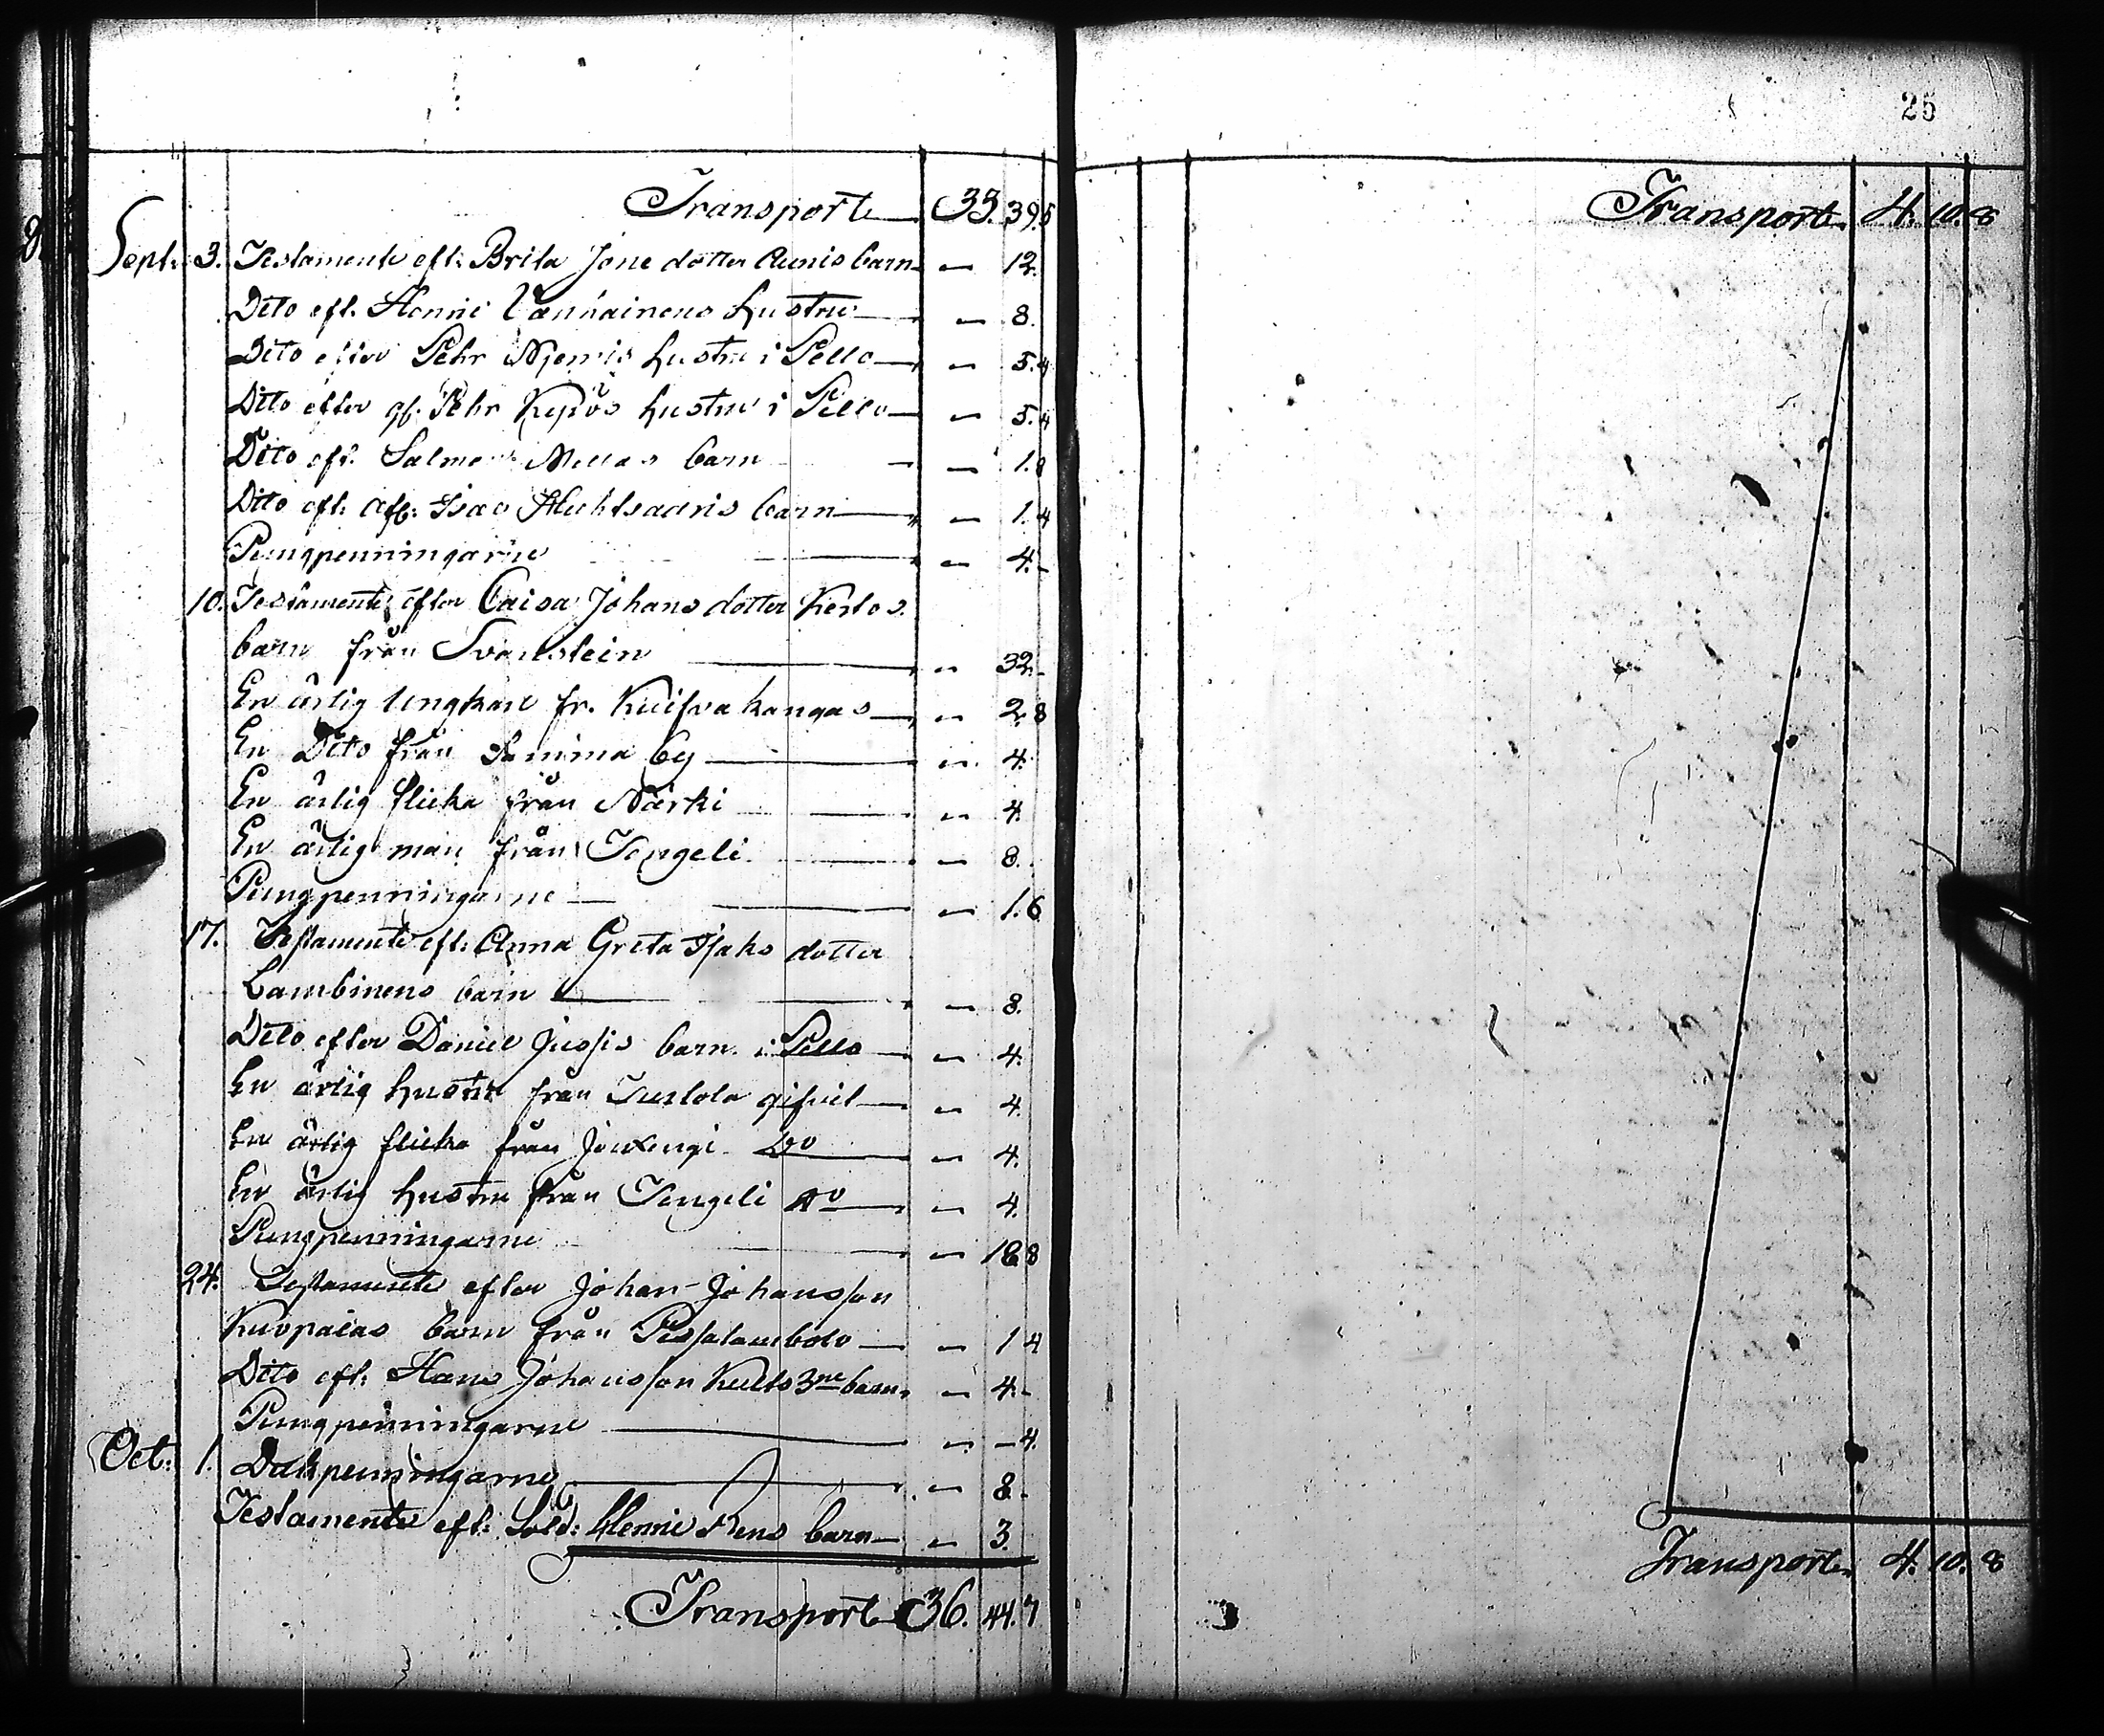 Transport 33. 39. 5
Sept: 3. Testamente eft: Brita Jöns dotter Aunis barn — 12.
Dito eft. Henric Vänhäinens hustru — 8.
Dito efter Pehr Niemis hustru i Pello — 5. 4
Dito efter gf. Pehr Kypös hustru i Pello — 5. 4
Dito eft. Salmon barn — 1. 8
Dito eft: afl: Isac Huhtsaaris barn — 1. 4
Pungpenningarne — 4. -
10. Testamente efter Caisa Johans dotter Kertos
barn från Svanstein — 32. -
En ärlig Ungkarl fr. Kuifvakangas — 2. 8
En Dito från samma by — 4.
En ärlig flicka från Närki — 4.
En ärlig man från Tengeli — 8.
Pungpenningarne — 1. 6
17. Testamente eft: Anna Greta Isaks dotter
Lambinens barn — 8.
Dito efter Daniel Jussis barn i Pello — 4.
En ärlig hustru från Turtola gifvit — 4
En ärlig flicka från Jouxengi Do — 4.
En ärlig hustru från Tengeli Do — 4.
Pungpenningarne — 16 8
24. Testamente efter Johan Johansson
Kuopaias barn från — 1 4
Dito eft: Hans Johansson 3ne barn — 4. -
Pungpenningarne — - 4.
Oct: 1. penningarne — 8. -
Testamente eft: Sold: Henric Rens barn — 3.
Transport 36. 44. 7
25
Transport 4. 10. 8
Transport 4. 10. 8